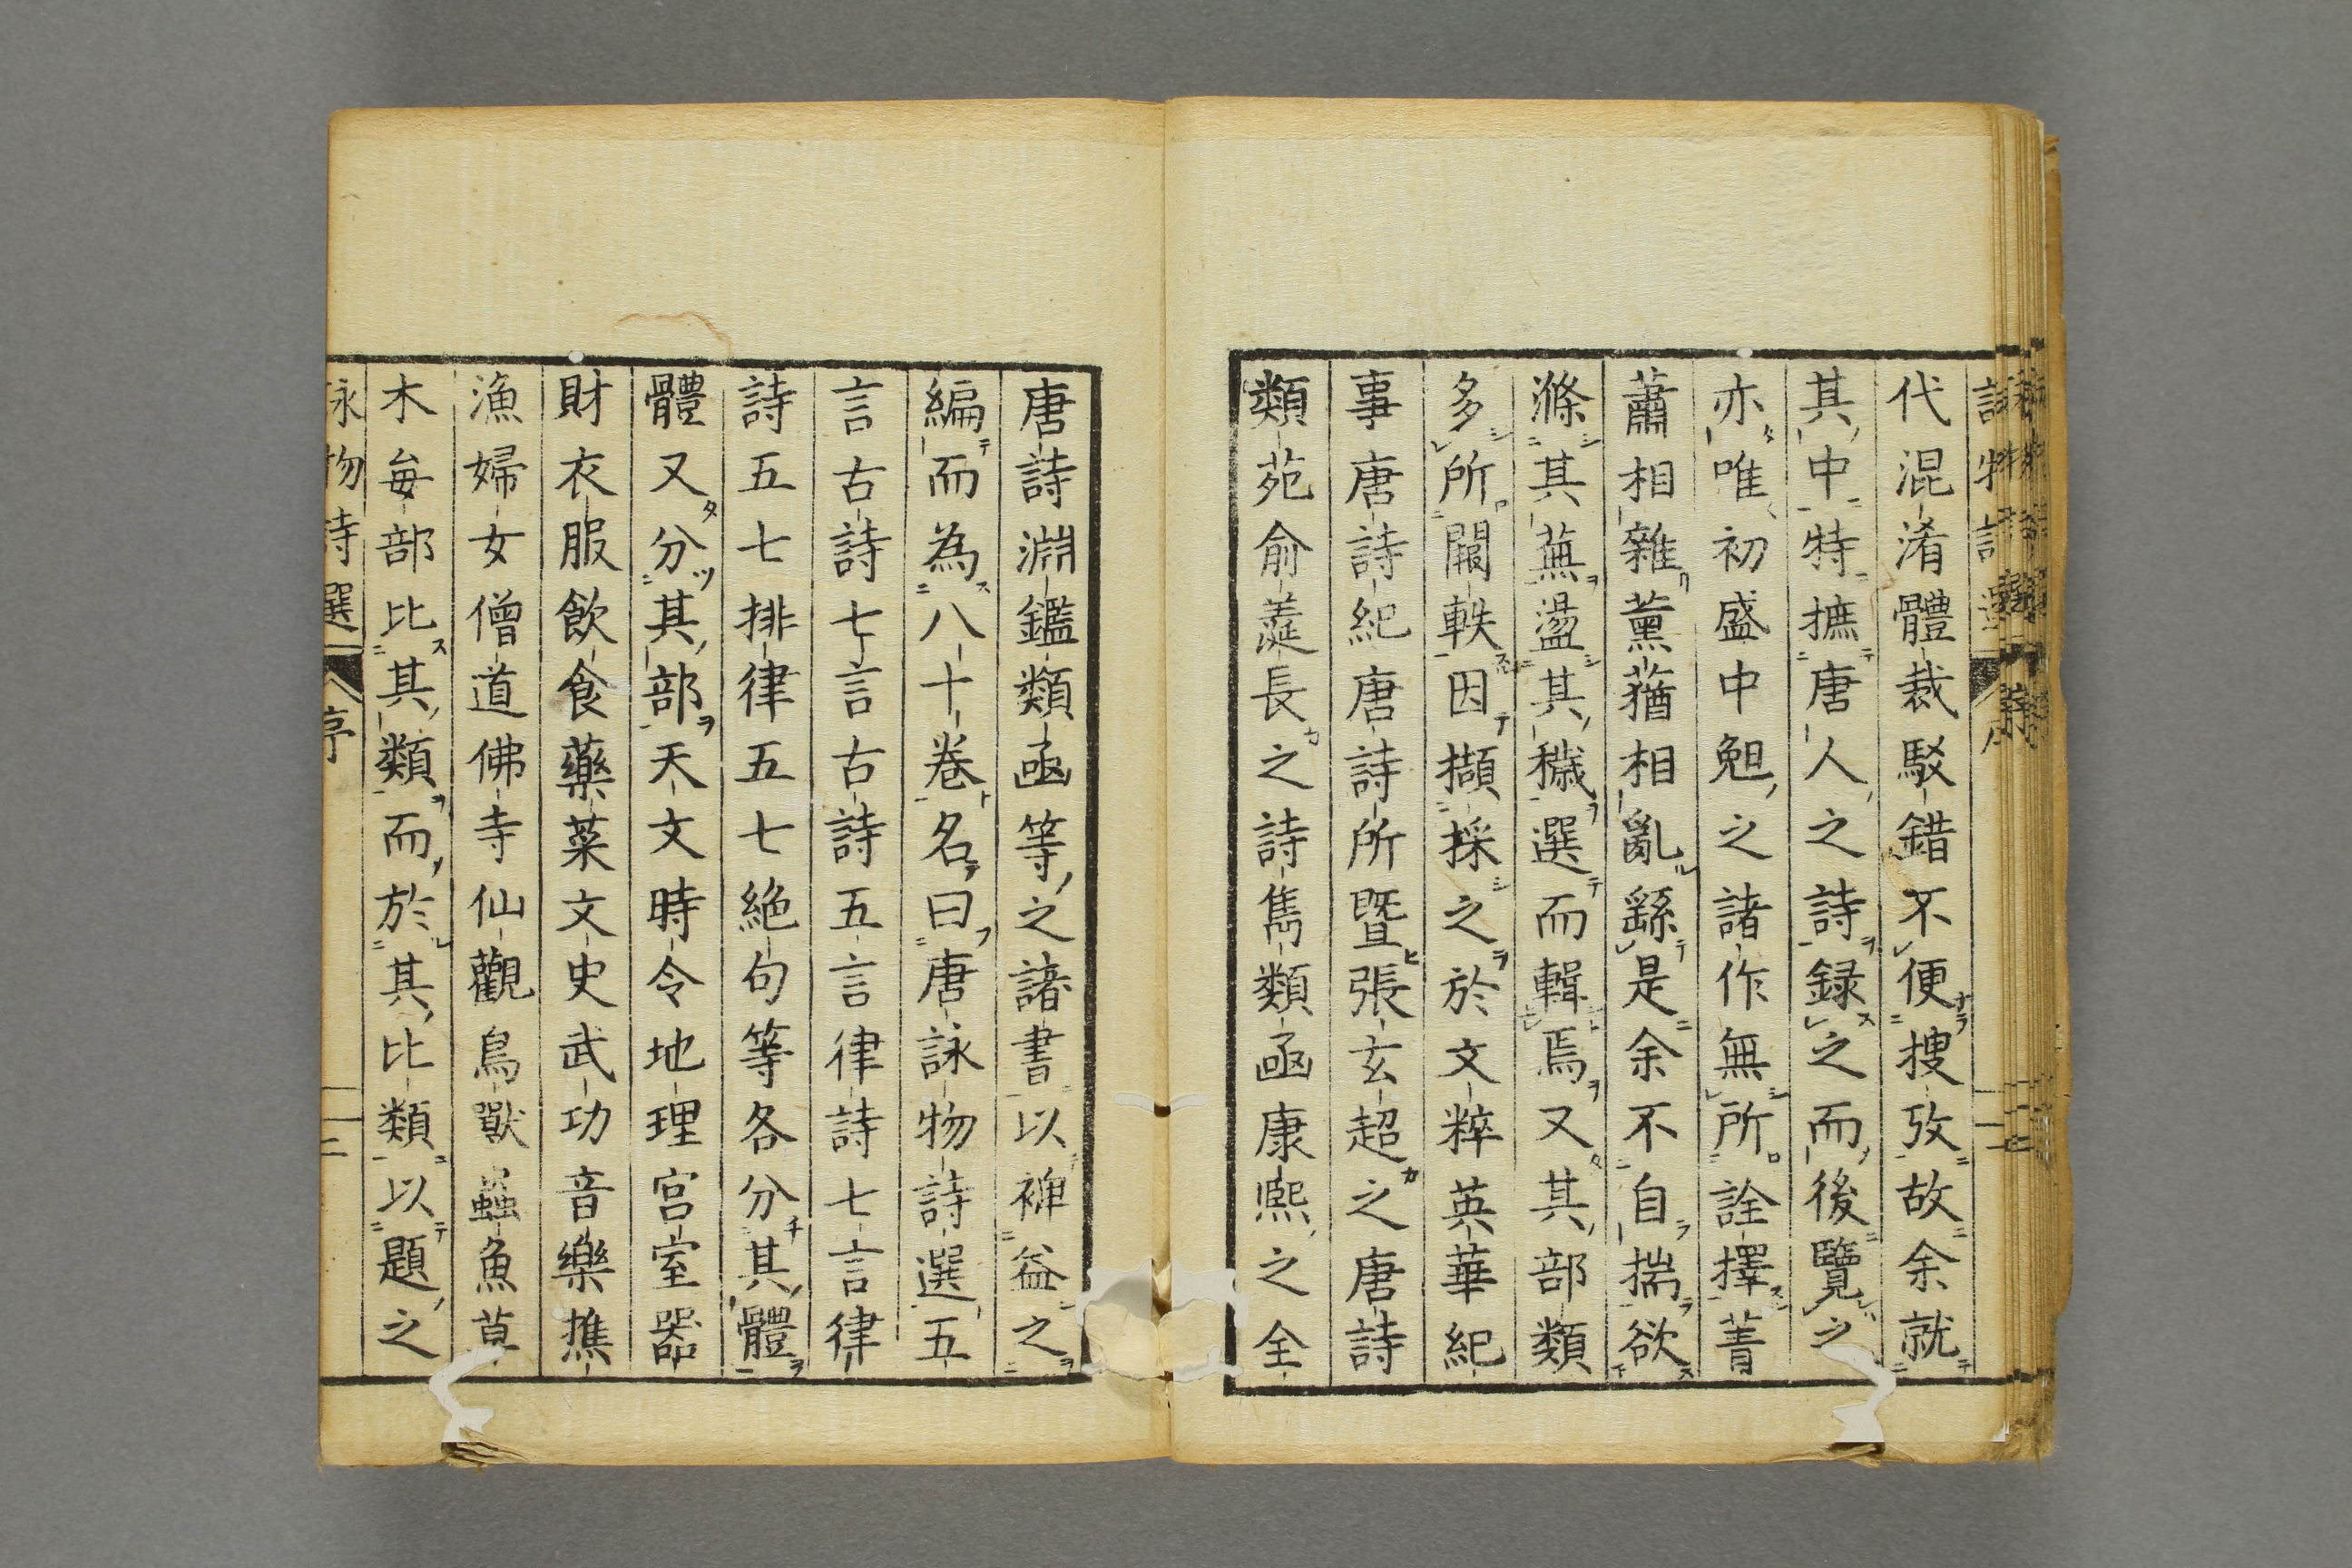 代混淆體裁駁錯不便捜攷故余就
其中特摭唐人之詩録之而後覽之
亦唯初盛中㒵之諸作無所詮擇菁
蕭相雜薫蕕相亂繇是余不自揣欲
滌其蕪盪其穢選而輯焉又其部類
多所闕軼因擷採之於文粹英華紀
事唐詩紀唐詩所曁張玄超之唐詩
類苑俞羡長之詩雋類函康熙之全
唐詩淵鑑類函等之諸書以裨益之
編而為八十卷名曰唐詠物詩選五
言古詩七言古詩五言律詩七言律
詩五七排律五七絶句等各分其體
體又分其部天文時令地理宮室器
財衣服飲食藥菜文史武功音樂樵
漁婦女僧道佛寺仙觀鳥獸蟲魚草
木每部比其類而於其比類以題之
詠物詩選 序 二